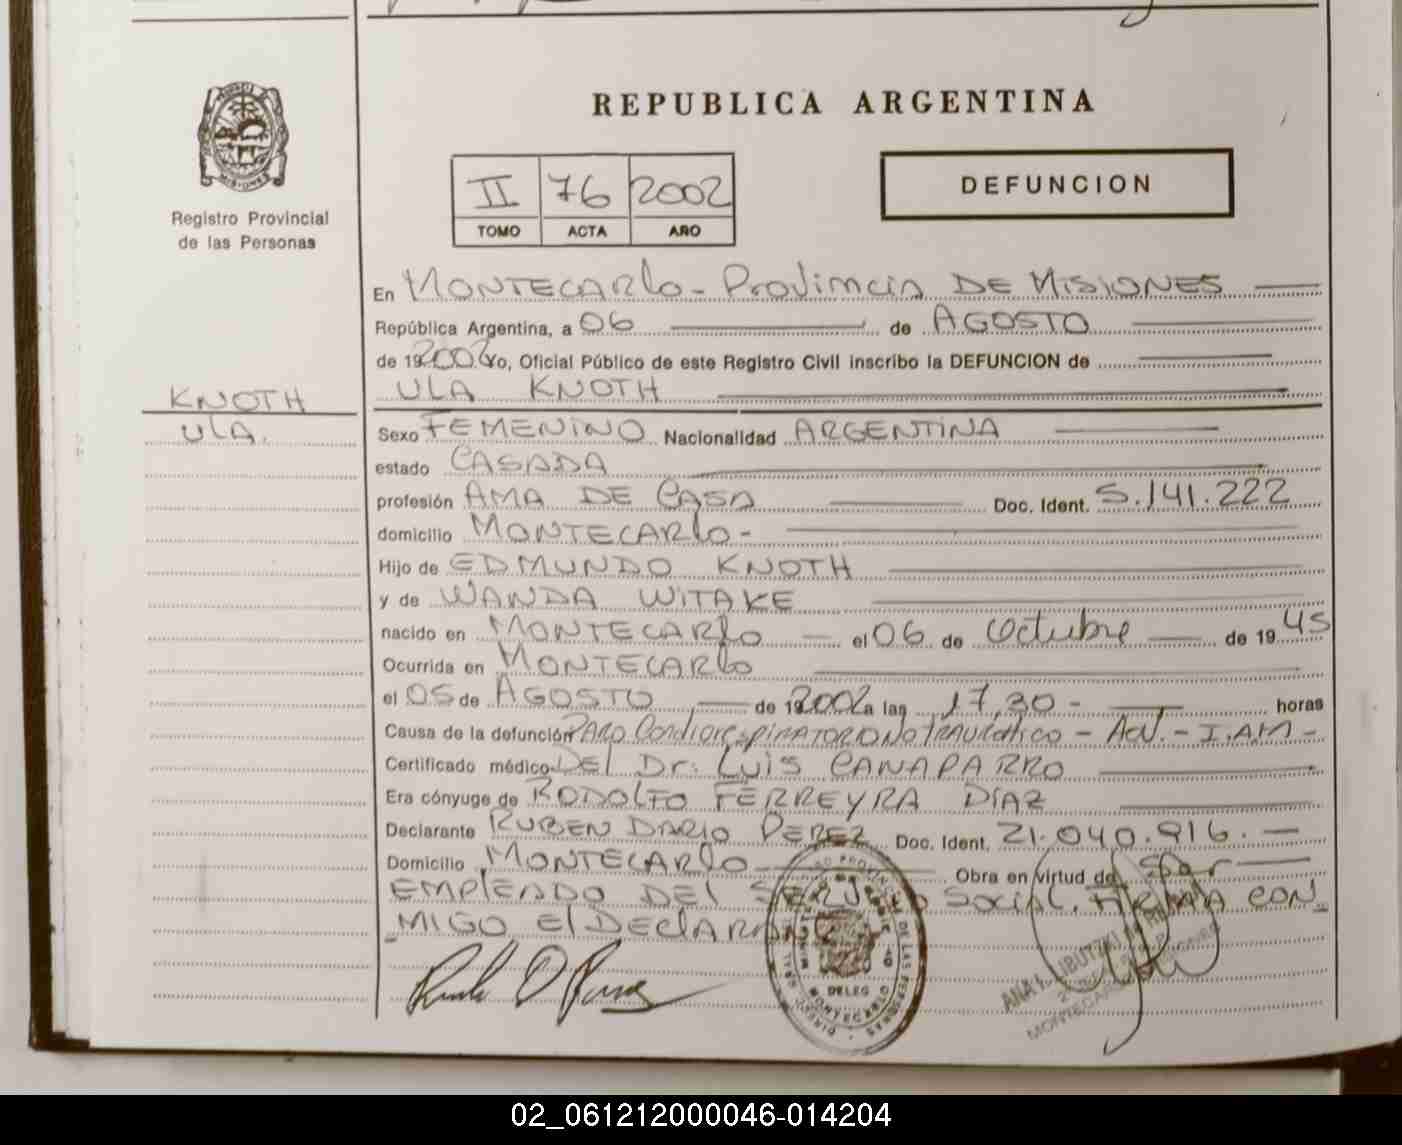 REPUBLICA ARGENTINA
MISIONES
Registro Provincial
de las Personas
II 76 2002
TOMO ACTA AÑO
DEFUNCION
En MONTECARlo - Provincia DE MISIONES
República Argentina, a 06 de AGOSTO
de 192002 Yo, Oficial Público de este Registro Civil inscribo la DEFUNCION de
ULA KNOTH
KNOTH
ULA.
Sexo FEMENINO Nacionalidad ARGENTINA
estado CASADA
profesión AMA DE CASA Doc. Ident. 5.141.222
domicilio MONTECARlo -
Hijo de EDMUNDO KNOTH
y de WANDA WITAKE
nacido en MONTECARlo el 06 de Octubre de 1945
Ocurrida en MONTECARlo
el 05 de AGOSTO de 192002 a las 17,30 - horas
Causa de la defunción PARO CardiorespiRATORIO No TRAUmático - AcV. - I.AM -
Certificado médico DEl Dr. LUIS CANAPARRO
Era cónyuge de RODOLFO FERREYRA DIAZ
Declarante RUBEN DARIO PEREZ Doc. Ident. 21.040.916. -
Domicilio MONTECARlo Obra en virtud de Ser
EMPLEADO DEl SERVicio SociAl. FIRMA CON_
_MIGO El DEClARANTE
DELEG
MONTECARLO
02_061212000046-014204